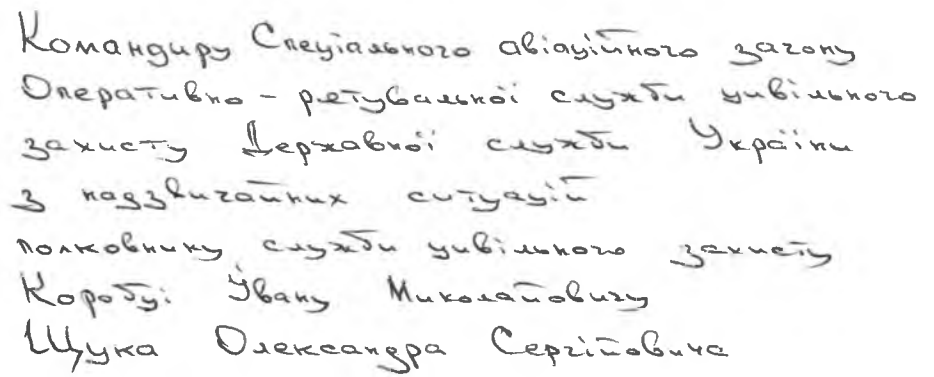 Командиру Спеціального авіаційного загону
Оперативно - рятувальної служби цивільного
захисту Державної служби України
з надзвичайних ситуацій
полковнику служби цивільного захисту
Івану Миколайовичу
Щука Олександра Сергійовича